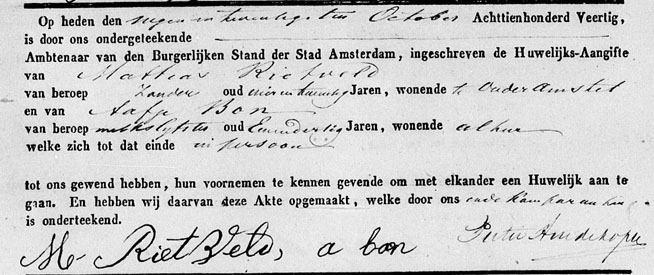 Op heden den negen en twintigsten October Achttienhonderd Veertig,
is door ons ondergeteekende
Ambtenaar van den Burgerlijken Stand der Stad Amsterdam, ingeschreven de Huwelijks-Aangifte
van Mathias Rietveld
van beroep Zander oud vier en twintig Jaren, wonende te Ouder Amstel
en van Aafje Bon
van beroep oud Een en dertig Jaren, wonende alhier
welke zich tot dat einde in persoon
tot ons gewend hebben, hun voornemen te kennen gevende om met elkander een Huwelijk aan te
gaan. En hebben wij daarvan deze Akte opgemaakt, welke door ons en de Komparanten
is onderteekend.
M Rietveld, a bon